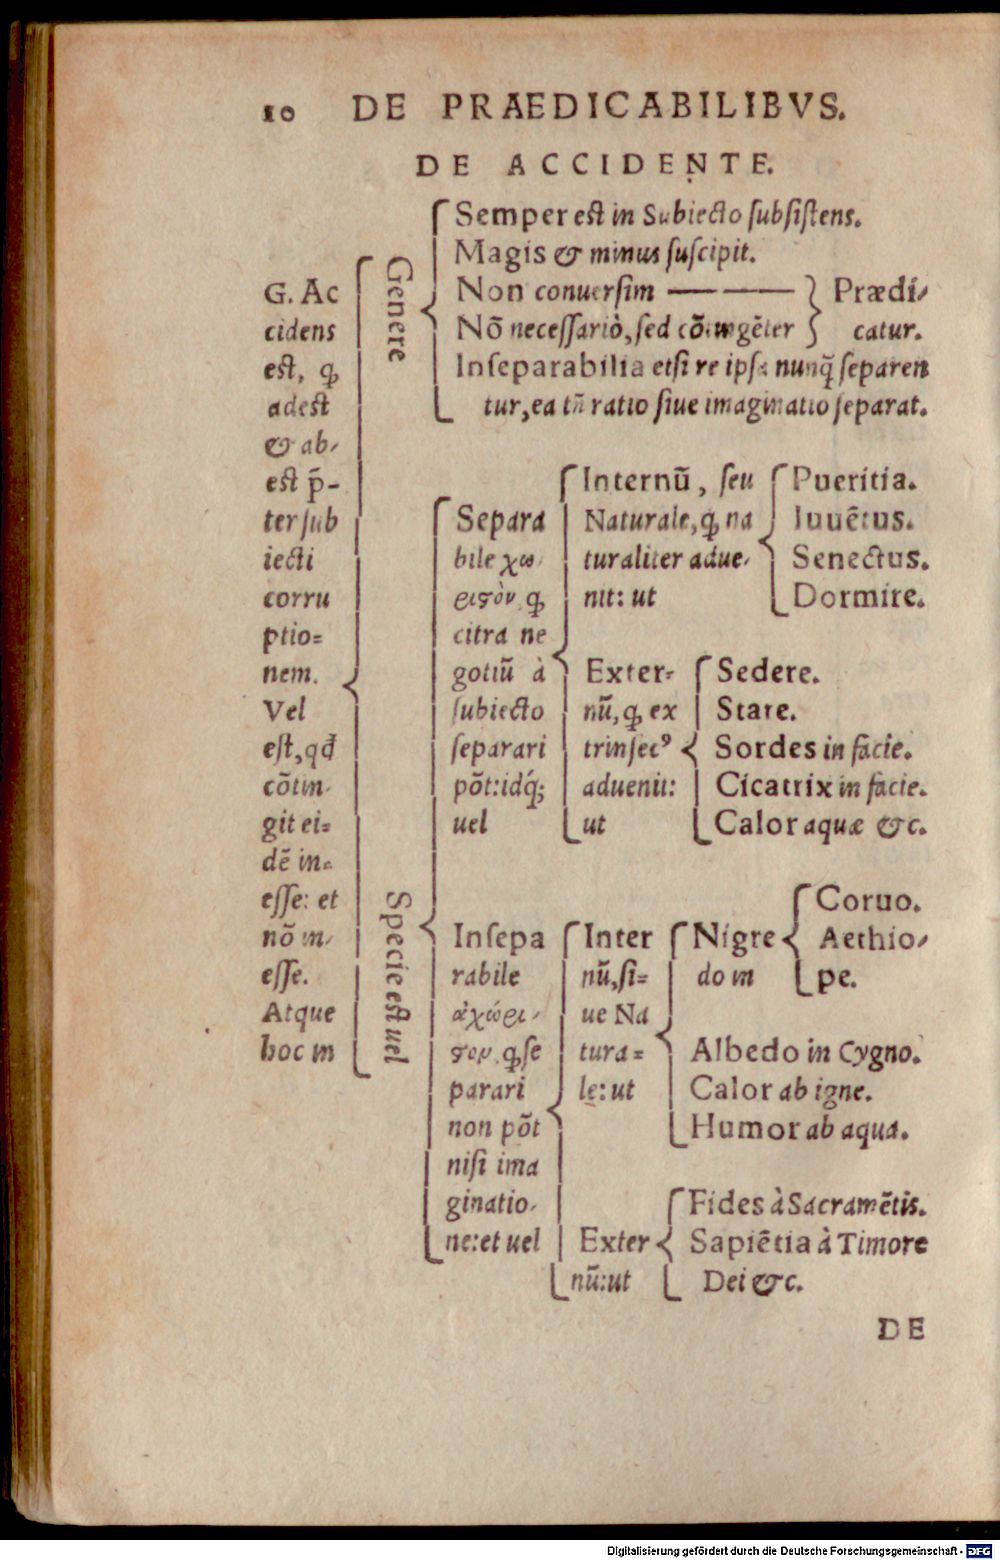 10 DE PRAEDICABILIBVS.
DE ACCIDENTE.
G. Ac
cidens
est, ꝙ
adest
& ab-
est p̄-
ter sub
iecti
corru
ptio=
nem.
Vel
est, qđ
cõtin-
git ei=
dẽ in=
esse: et
nõ in-
esse.
Atque
hoc in
Genere
Semper est in Subiecto subsistens.
Magis & minus suscipit.
Non conuersim ——— Prædi-
Nõ necessariò, sed cõtingẽter catur.
Inseparabilia etsi re ipsa nunq̃ separen
tur, ea tñ ratio siue imaginatio separat.
Specie est uel
Separa
bile χω-
ριστὸν, ꝙ
citra ne
gotiũ à
subiecto
separari
põt: idq́;
uel
Internũ, seu
Naturale, ꝙ na
turaliter adue-
nit: ut
Pueritia.
Iuuẽtus.
Senectus.
Dormire.
Exter-
nũ, ꝙ ex
trinsecꝰ
aduenit:
ut
Sedere.
Stare.
Sordes in facie.
Cicatrix in facie.
Calor aquæ &c.
Insepa
rabile
ἀχώρι-
στον, ꝙ se
parari
non põt
nisi ima
ginatio-
ne: et uel
Inter
nũ, si=
ue Na
tura=
le: ut
Nigre
do in
Coruo.
Aethio-
pe.
Albedo in Cygno.
Calor ab igne.
Humor ab aqua.
Exter
nũ: ut
Fides à Sacramẽtis.
Sapiẽtia à Timore
Dei &c.
DE
Digitalisierung gefördert durch die Deutsche Forschungsgemeinschaft - DFG